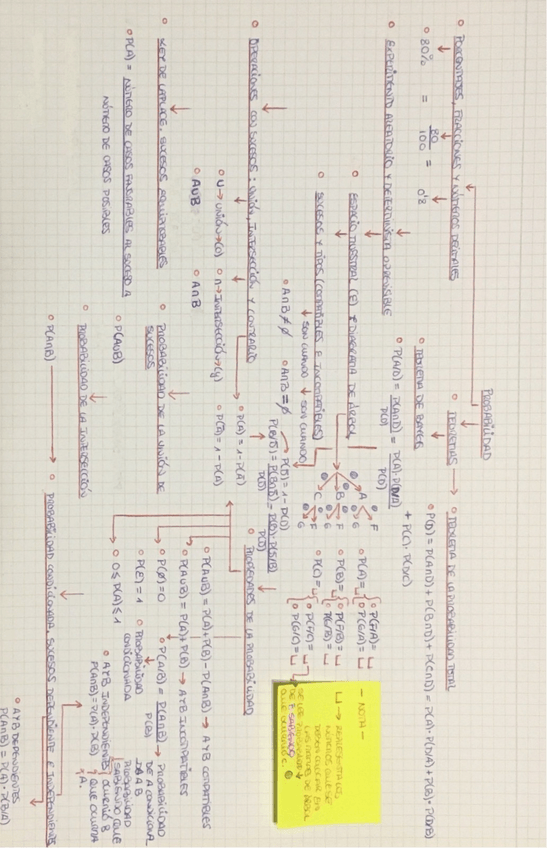 PROBABILIDAD
○ PORCENTAJES, FRACCIONES Y NÚMEROS DECIMALES
○ 80% = 80/100 = 0'8
○ EXPERIMENTO ALEATORIO Y DETERMINISTA O PREVISIBLE
○ ESPACIO MUESTRAL (E) Y DIAGRAMA DE ÁRBOL
○ SUCESOS Y TIPOS (COMPATIBLES E INCOMPATIBLES)
SON CUANDO SON CUANDO
○ A∩B≠∅ ○ A∩B=∅
○ OPERACIONES CON SUCESOS: UNIÓN, INTERSECCIÓN Y CONTRARIO
○ U → UNIÓN → (O) ○ ∩ → INTERSECCIÓN → (y)
○ AUB ○ A∩B
○ LEY DE LAPLACE. SUCESOS EQUIPROBABLES
○ P(A) = NÚMERO DE CASOS FAVORABLES AL SUCESO A
NÚMERO DE CASOS POSIBLES
○ TEOREMAS → ○ TEOREMA DE LA PROBABILIDAD TOTAL
○ P(D) = P(A∩D) + P(B∩D) + P(C∩D) = P(A)·P(D/A) + P(B)·P(D/B)
+ P(C)·P(D/C)
○ TEOREMA DE BAYES
○ P(A/D) = P(A∩D)/P(D) = P(A)·P(D/A)/P(D)
A F G
B F G
C F G
○ P(A)= ○ P(F/A)=
○ P(G/A)=
○ P(B)= ○ P(F/B)=
○ P(G/B)=
○ P(C)= ○ P(F/C)=
○ P(G/C)=
- NOTA -
○ P(A̅) = 1 - P(A)
○ P(A̅) = 1 - P(A)
○ PROPIEDADES DE LA PROBABILIDAD
○ P(AUB) = P(A) + P(B) - P(A∩B) → A Y B COMPATIBLES
○ P(AUB) = P(A) + P(B) → A Y B INCOMPATIBLES
○ P(∅)=0
○ P(E) = 1
○ 0 ≤ P(A) ≤ 1
○ P(A/B) = P(A∩B)/P(B) → PROBABILIDAD DE A CONDICIONADA B
○ PROBABILIDAD CONDICIONADA
PROBABILIDAD SABIENDO QUE OCURRIÓ B QUE OCURRA A.
○ A Y B INDEPENDIENTES
P(A∩B) = P(A)·P(B)
○ PROBABILIDAD DE LA UNIÓN DE SUCESOS
○ P(AUB)
○ PROBABILIDAD DE LA INTERSECCIÓN
○ P(A∩B) → ○ PROBABILIDAD CONDICIONADA. SUCESOS DEPENDIENTE E INDEPENDIENTE
○ A Y B DEPENDIENTES
P(A∩B) = P(A)·P(B/A)